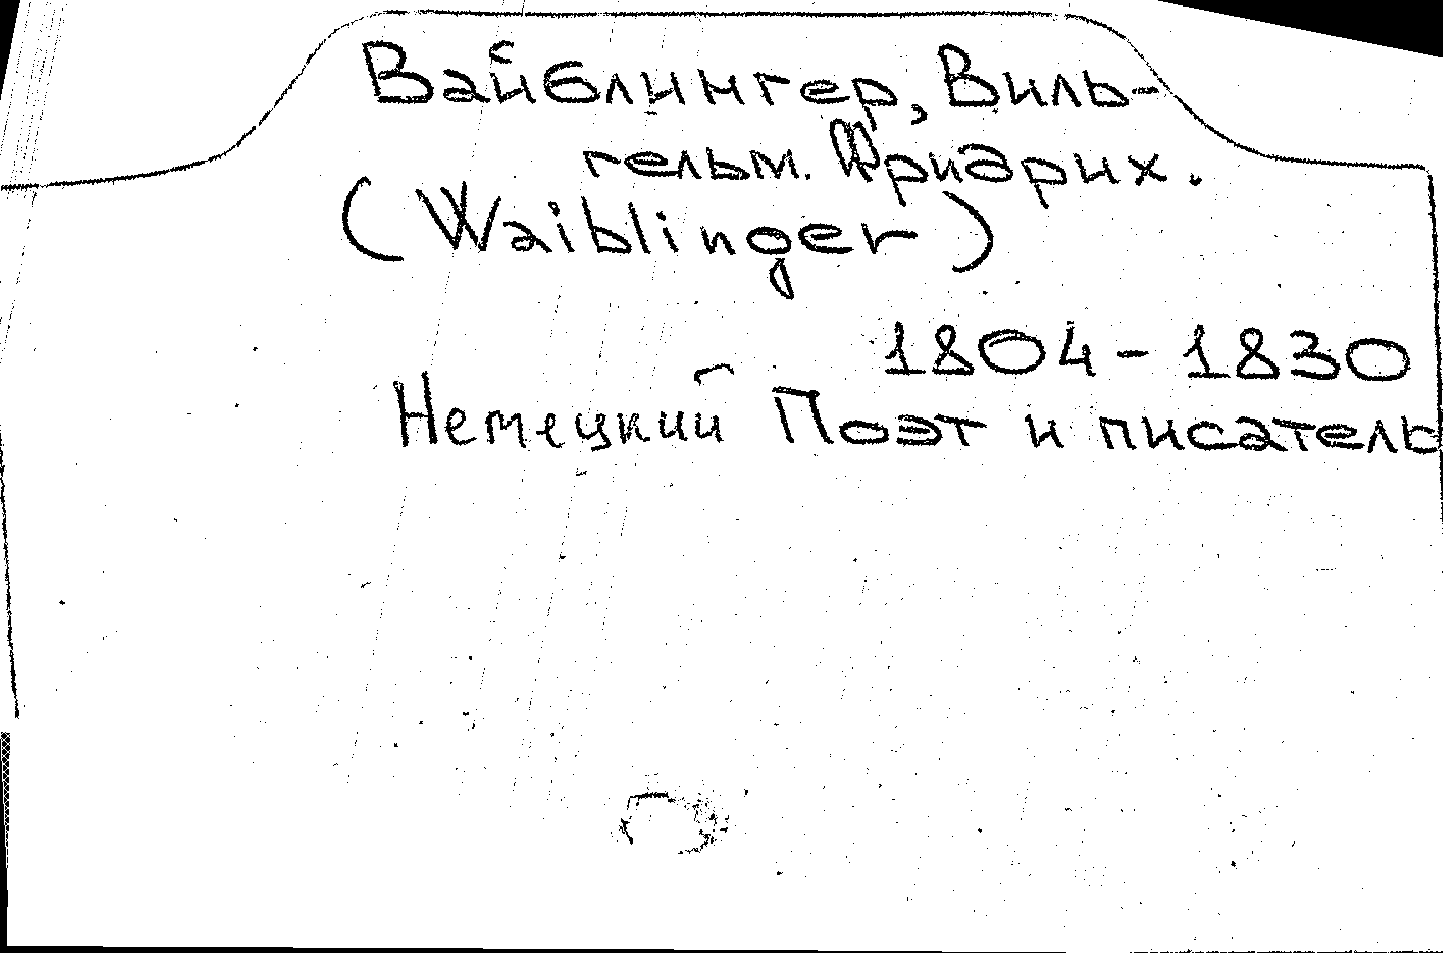 Вайблингер, Виль-
гельм. Фридрих.
(Waiblinger)
1804-1830
Немецкий Поэт и писатель